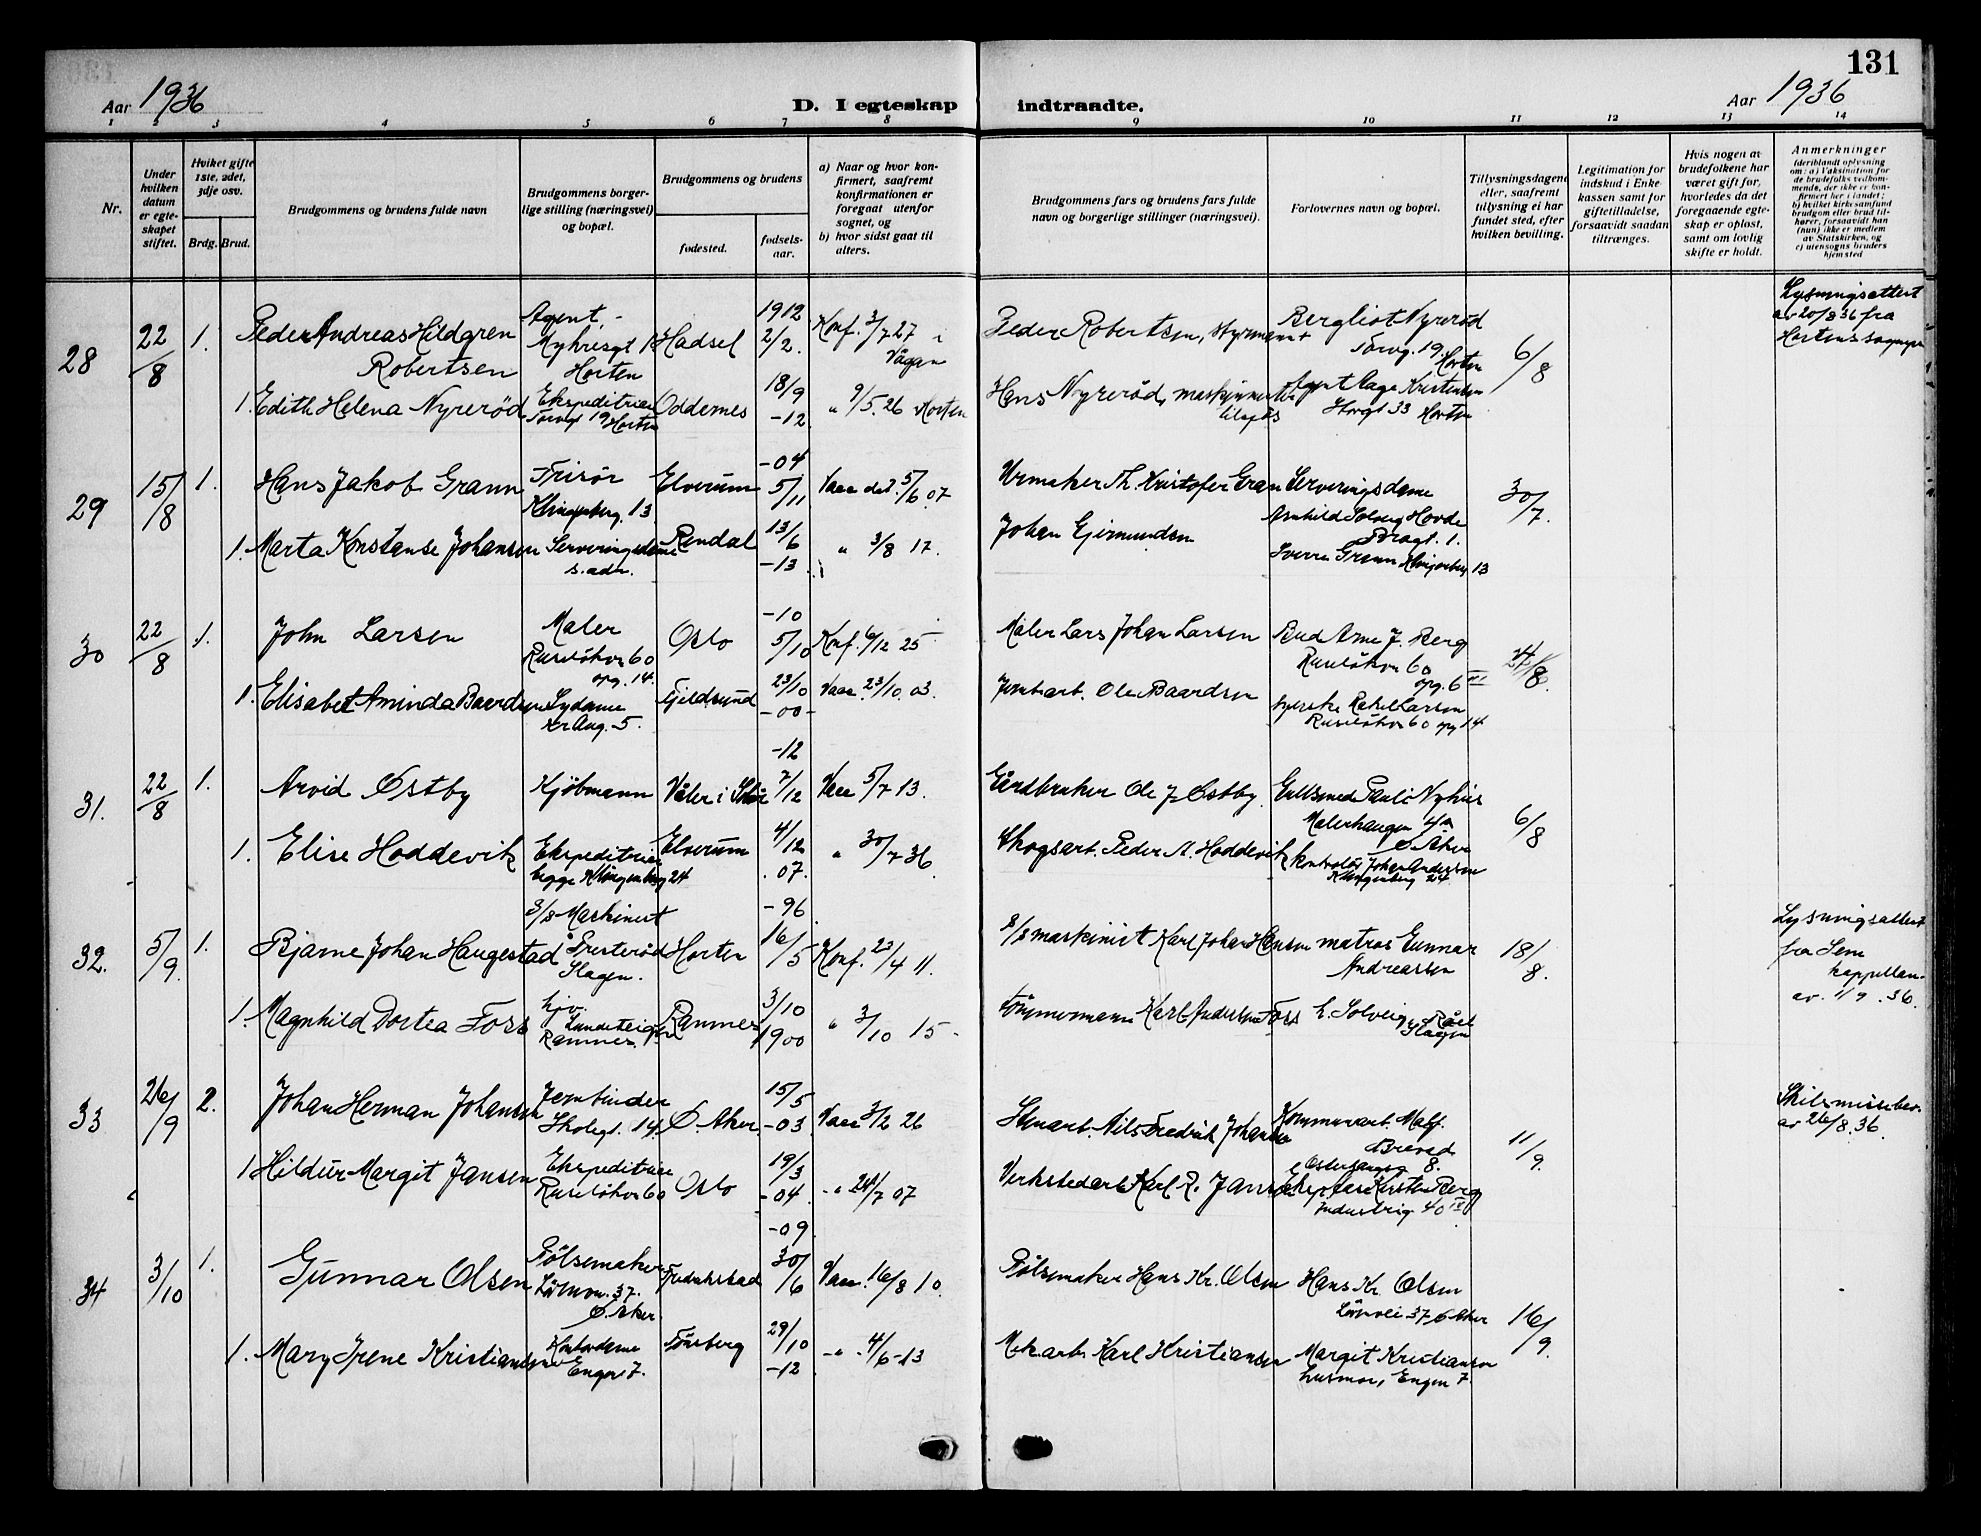 131
Aar 1936
D. I egteskap indtraadte.
Aar 1936
1 2 3 4 5 6 7 8 9 10 11 12 13 14
Nr.
Under hvilken datum er egteskapet stiftet.
Hvilket gifte 1ste, 2det, 3dje osv.
Brdg. Brud.
Brudgommens og brudens fulde navn
Brudgommens borgerlige stilling (næringsvei) og bopæl.
Brudgommens og brudens
fødested.
fødselsaar.
a) Naar og hvor konfirmert, saafremt konfirmationen er foregaat utenfor sognet, og
b) hvor sidst gaat til alters.
Brudgommens fars og brudens fars fulde navn og borgerlige stillinger (næringsvei).
Forlovernes navn og bopæl.
Tillysningsdagene eller, saafremt tillysning ei har fundet sted, efter hvilken bevilling.
Legitimation for indskud i Enkekassen samt for giftetilladelse, forsaavidt saadan tiltrænges.
Hvis nogen av brudefolkene har været gift før, hvorledes da det foregaaende egteskap er opløst, samt om lovlig skifte er holdt.
Anmerkninger (deriblandt oplysning om: a) Vaksination for de brudefolks vedkommende, der ikke er konfirmert her i landet; b) hvilket kirkesamfund brudgom eller brud tilhører, forsaavidt han (hun) ikke er medlem av Statskirken, og c) utensogns bruders hjemsted
28 22/8 1. Peder Andreas Hildgren Robertsen
Agent, Horten
Hadsel
1912 2/2.
Konf. 3/7 27 i Vågan
Peder Robertsen, styrmann
Bergliot Nyrerød Torvg. 19 Horten
6/8
Lysningsattest av 20/8 36 fra Hortens sognepr.
1. Edith Helena Nyrerød
Ekspeditrise Torvgt 19 Horten
Oddernes
18/9 -12
" 9/5. 26 Horten
Hans Nyrerød, maskinm
Agent Aage Kristensen Storgt 33 Horten
29 15/8 1. Hans Jakob Grann
Frisør Klingenberg. 13
Elverum
-04 5/11
Vacc. dat. 5/6 07
Urmaker Th. Kristofer Gran
Serveringsdame Arnhild Solveig Hovde 1.
30/7.
1. Marta Konstanse Johansen
Serveringsdame s. adr.
Rendal
13/6 -13
" 3/8 17.
Johan Gjermundsen
Sverre Grann Klingenberg 13
30 22/8 1. John Larsen
Maler Ruseløkvn 60 opg. 14.
Oslo
-10 5/10
Konf. 6/12 25
Maler Lars Johan Larsen
Bud Arne J. Berg Ruseløkvn 60 opg. 6 III
1. Elisabet Aminda Baardsen
Sydame Kr Aug. 5.
Fjeldsund
23/10 -00-
Vacc. 23/10 03.
Jernb.arb. Ole Baardsen
Syerske Rakel Larsen Ruseløkvn 60 opg 14
31. 22/8 1. Arvid Østby
Kjøbmann
Våler i Solør
-12 7/12
Vacc 5/7 13.
Gårdbruker Ole J Østby
Gullsmed Paul Nyhus Malerhaugen 4a Ø. Aker
6/8
1. Elise Hoddevik
Ekspeditrise begge Klingenberg 24
Elverum
4/12 07.
" 30/7 36
Skogsarb. Peder A. Hoddevik
Kontorist Johan Andersen Klingenberg 24
32. 5/9. 1. Bjarne Johan Haugestad
s/s Maskinist Presterød Slagen.
Horten
-96 16/5
Konf. 23/4 11.
s/s maskinist Karl Johan Hansen
matros Gunnar Andreassen
18/8.
Lysningsattest fra Sem kappellan av 1/9. 36.
1. Magnhild Dortea Foss
hjv. Lundeteigen Ramnes.
Ramnes
3/10 1900
" 3/10 15-
tømmermann Karl Anderssen Foss
L. Solveig Råel Slagen
33 26/9 2. Johan Herman Johansen
Jernbinder Skolegt. 14
Ø. Aker.
15/5 -03
Vacc 3/2 26
Stenarb. Nils Fredrik Johansen
Kommunearb. Malf. Breved Østerhausg 8.
11/9.
Skilsmissebev. av 26/8. 36.
1 Hildur Margit Jansen
Ekspeditrise Ruseløkvn 60
Oslo
19/3 -04
-"- 24/7 07
Verkstedarb. Karl R. Jansen
Kirsten Berg Industrig 40 IV
34 3/10 1. Gunnar Olsen
Pølsemaker 37. Ø. Aker.
Fredrikstad
-09 30/6
Vacc. 16/8 10.
Pølsemaker Hans Kr. Olsen
Hans Kr. Olsen 37, Ø Aker
16/9.
1. Mary Irene Kristiansen
Kontordame Engen 7.
Tønsberg
29/10 -12
-"- 4/6 -13
Mek.arb. Karl Kristiansen
Margit Kristiansen husmor, Engen 7.